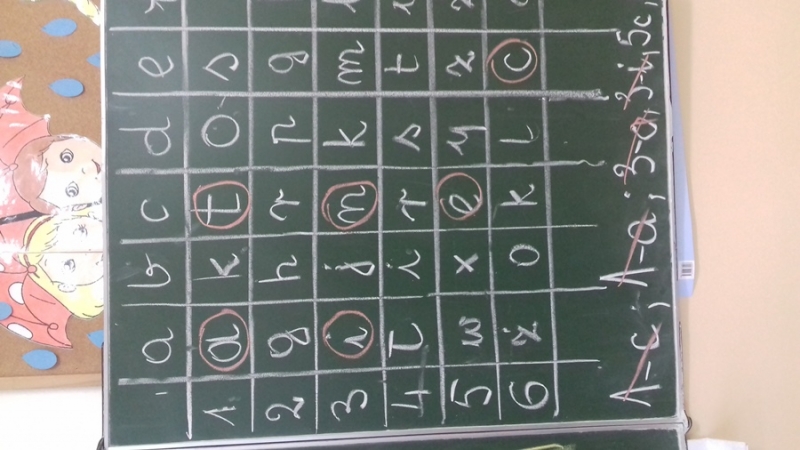 a b c d e
1 a k t o s
2 g h r n g
3 i j m k m
4 t i r s t
5 w x e y z
6 ż o k l c
1-c; 1-a; 3-a, 3-i; 5c,